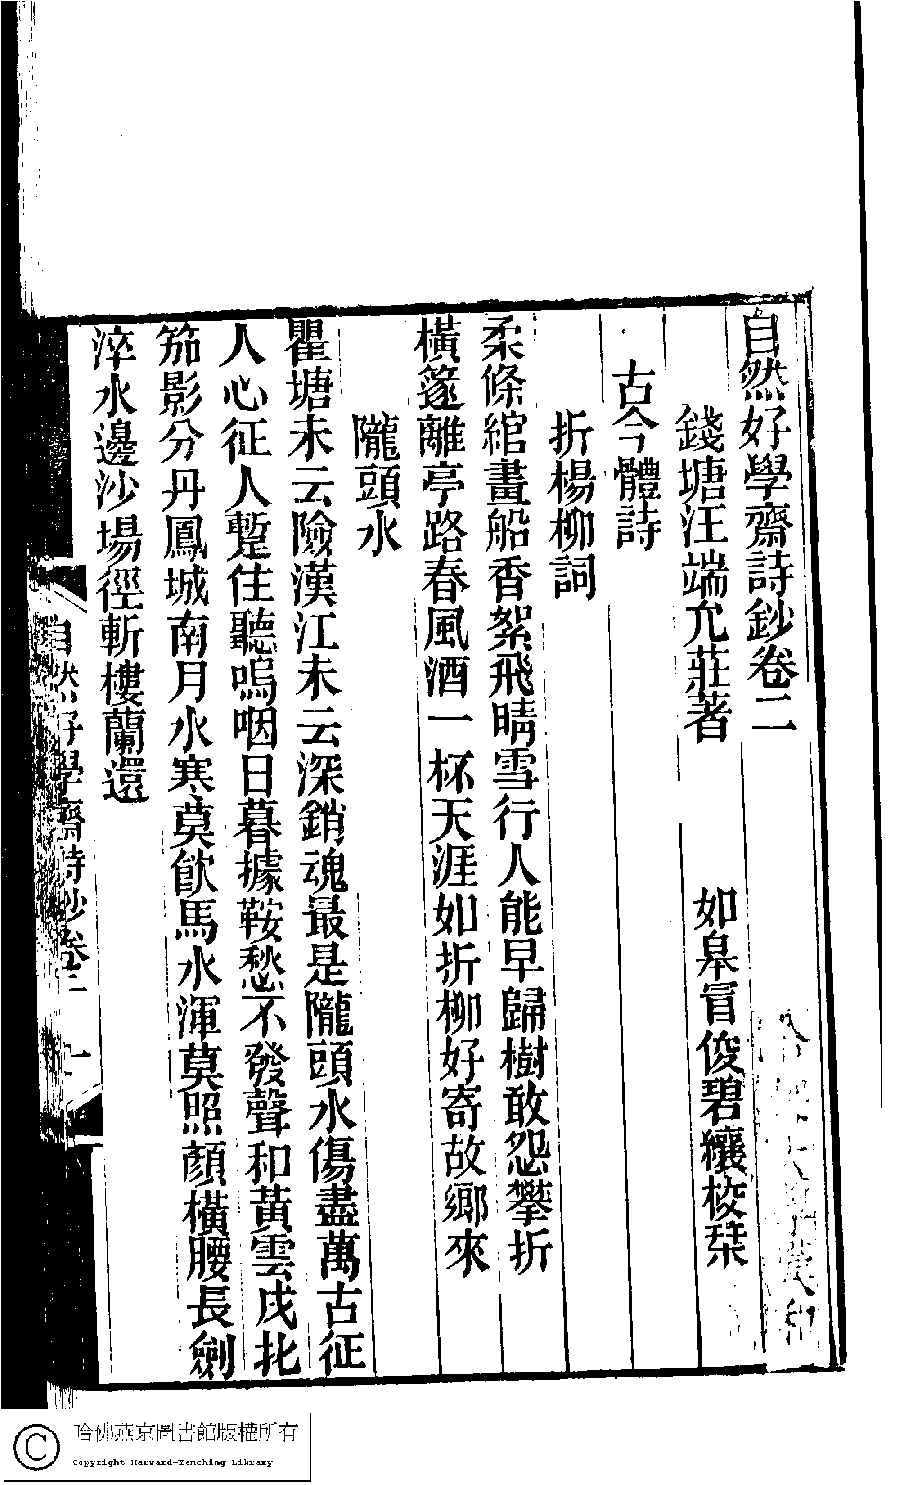 自然好學齋詩鈔卷二
錢塘汪端允莊著　如皋冒俊碧纕校栞
古今體詩
折楊柳詞
柔條綰畫船香絮飛晴雪行人能早歸樹敢怨攀折
橫篴離亭路春風酒一杯天涯如折柳好寄故鄉來
隴頭水
瞿塘未云險漢江未云深銷魂最是隴頭水傷盡萬古征
人心征人蹔住聽嗚咽日暮據鞍愁不發聲和黃雲戍北
笳影分丹鳳城南月水寒莫飮馬水渾莫照顏橫腰長劍
淬水邊沙場徑斬樓蘭還
自然好學齋詩鈔卷二　一
哈佛燕京圖書館版權所有
Copyright Harvard-Yenching Library